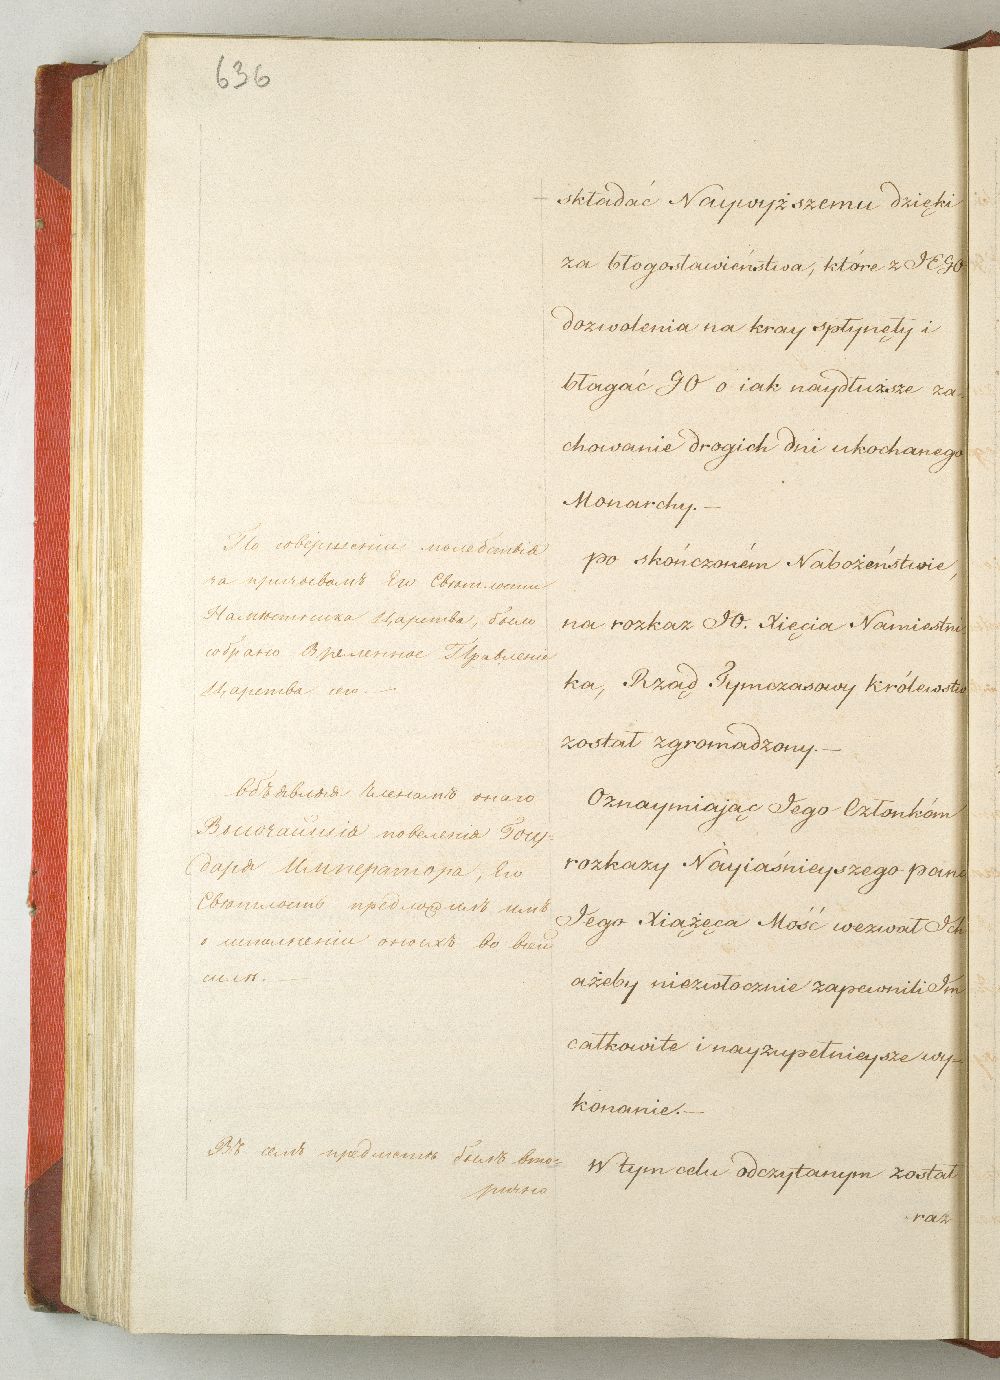 636
składać Naywyższemu dzięki
za błogosławieństwa, które z JEGO
dozwolenia na kray spłynęły i
błagać GO o iak naydłuższe za-
chowanie drogich dni ukochanego
Monarchy.—
po skończoném Nabożeństwie,
na rozkaz JO. Xięcia Namiestni
ka, Rząd Tymczasowy Królewstw
został zgromadzony.—
Oznaymiając Jego Członkóm
rozkazy Nayiaśnieyszego pana
Jego Xiążęca Mość wezwał Ich
ażeby niezwłocznie zapewnili Im
całkowite i nayzupełnieysze wy-
konanie.—
W tym celu odczytanym został
raz
По совершеніи молебствія
за призывомъ Его Свѣтлости
Намѣстника Царства, было
собрано Временное Правленіе
Царства сего.—
Объявляя Членамъ онаго
Высочайшія повеленія Госу-
даря Императора, Его
Свѣтлость предложилъ имъ
о исполненіи оныхъ во всей
силѣ.—
Въ семъ предметѣ былъ вто-
рично